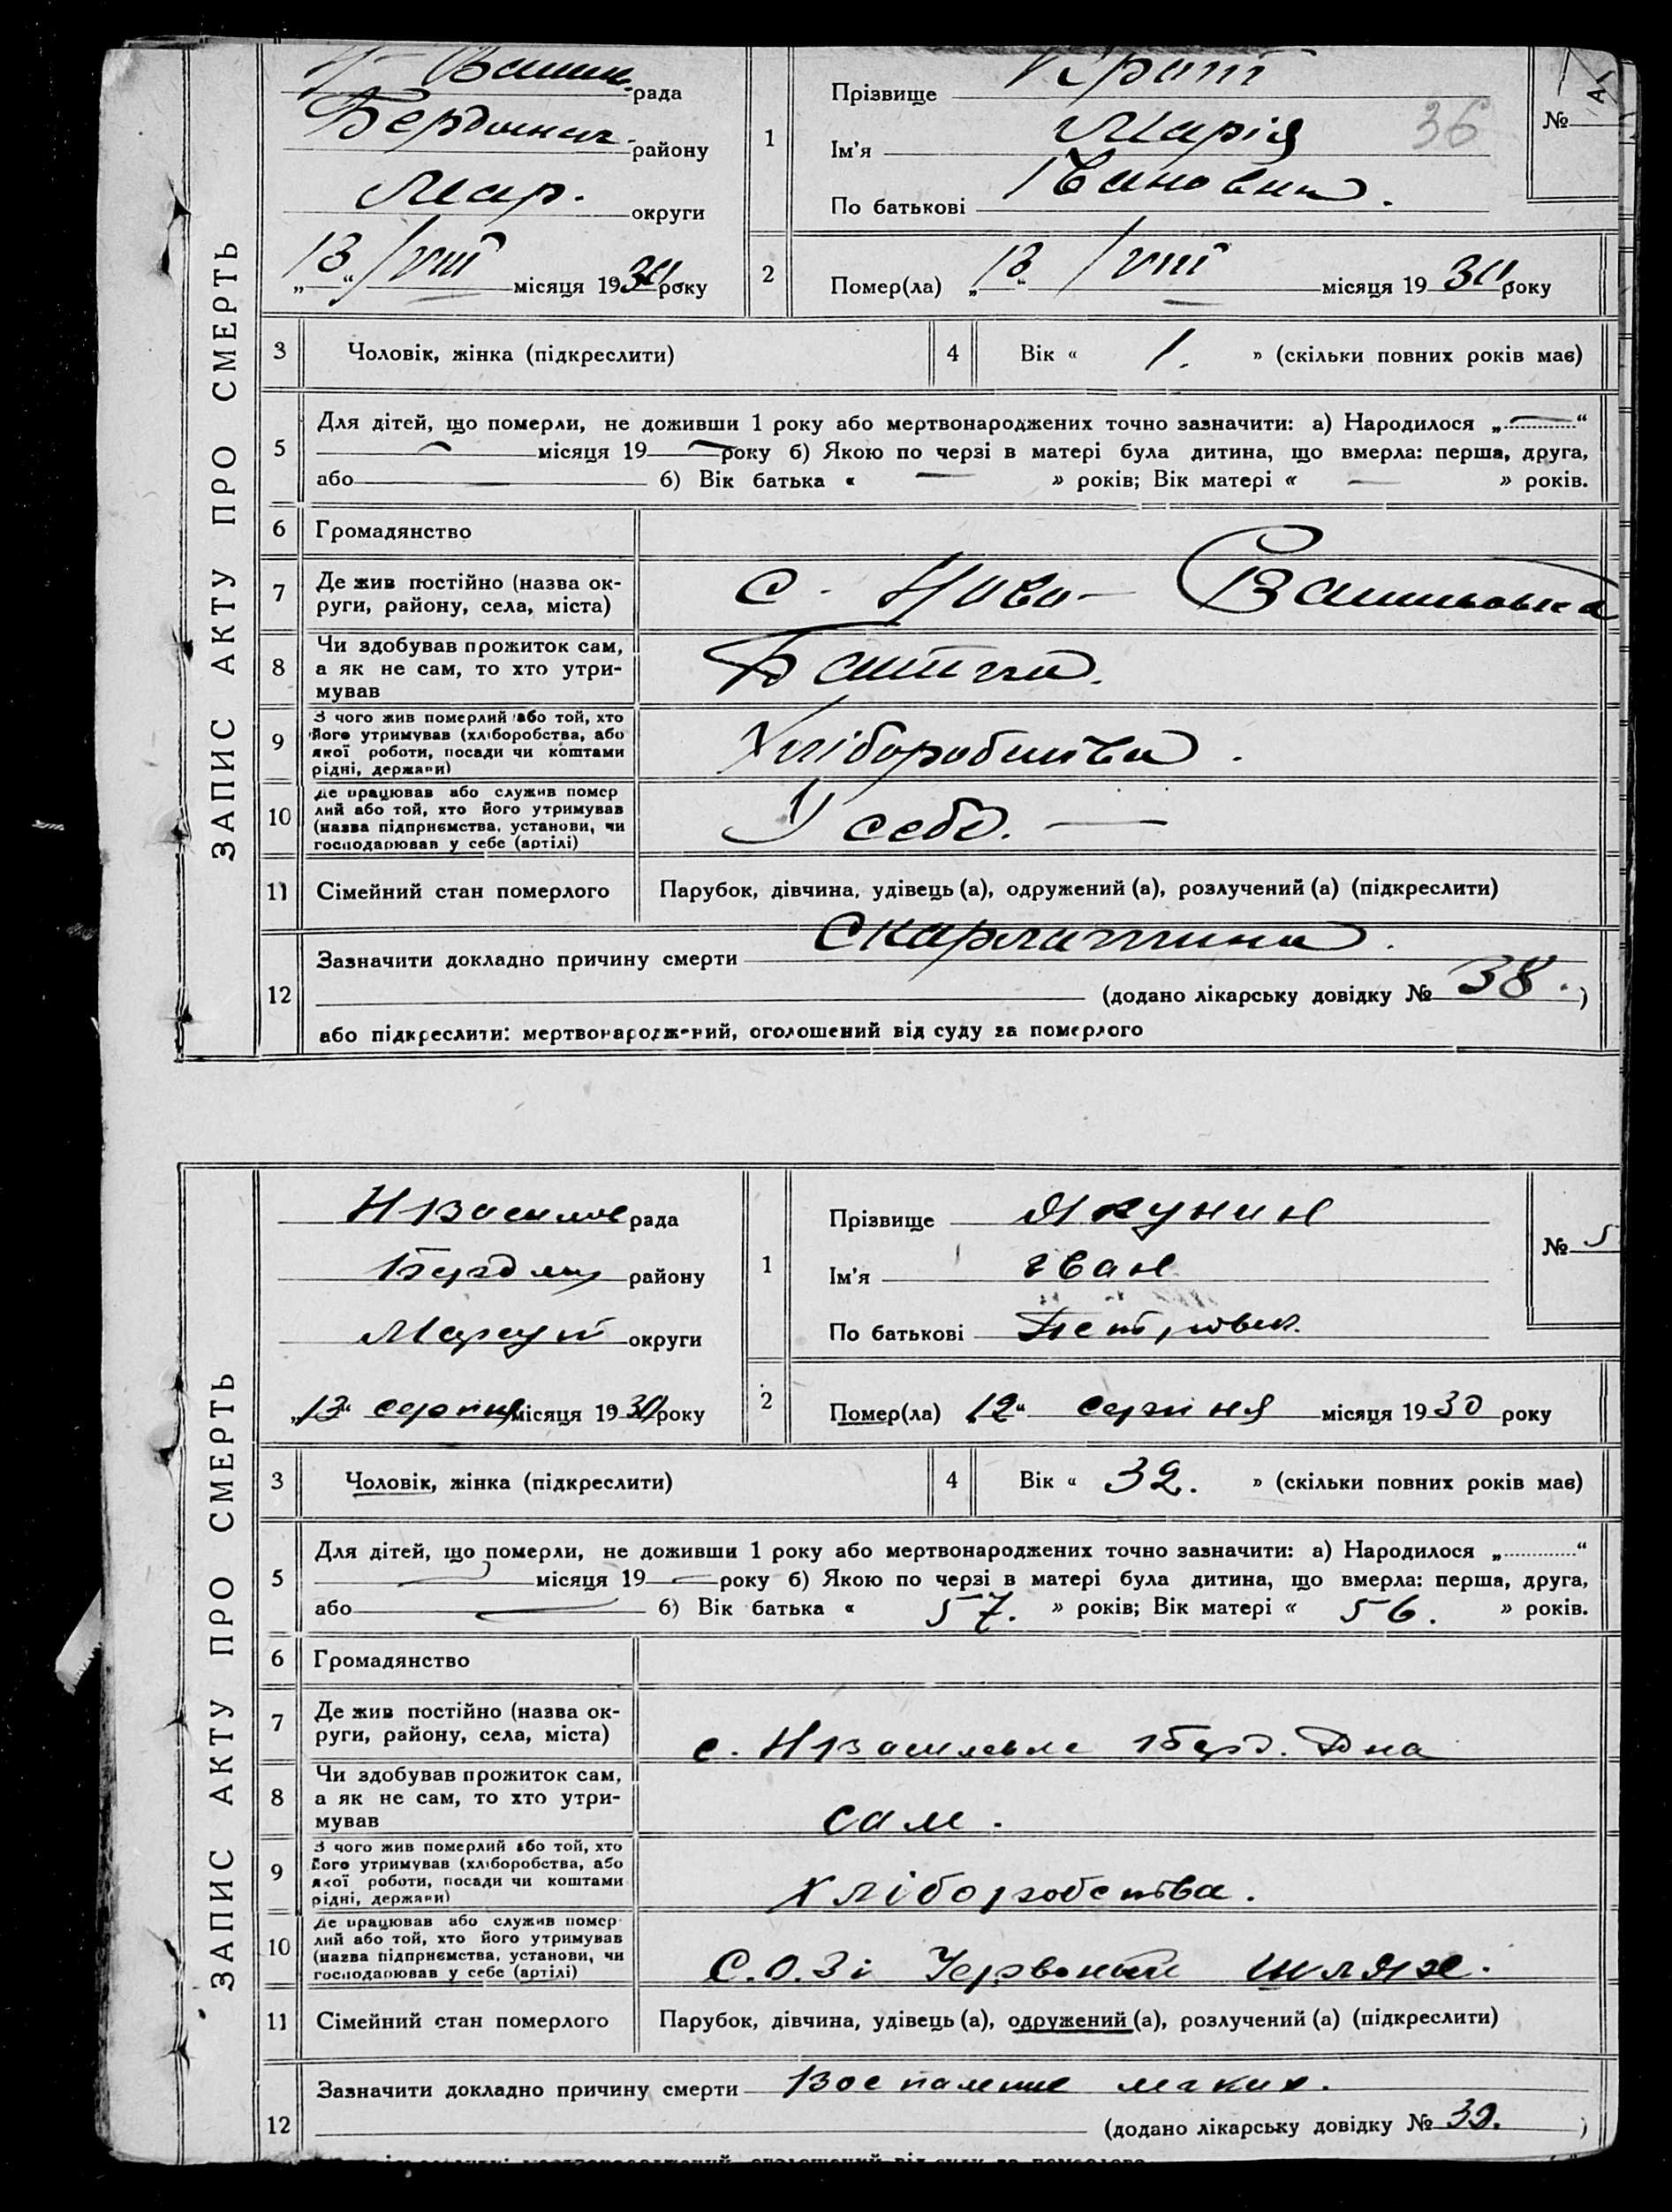 ЗАПИС АКТУ ПРО СМЕРТЬ
рада
району
Мар. округи
„13“ /VIII місяця 1930 року
1
Прізвище
Ім'я Марія
36
По батькові Івановна.
№
2
Помер(ла) „13“ /VIII місяця 1930 року
3 Чоловік, жінка (підкреслити)
4 Вік « 1. » (скільки повних років має)
5
Для дітей, що померли, не доживши 1 року або мертвонароджених точно зазначити: а) Народилося „—“
— місяця 19— року б) Якою по черзі в матері була дитина, що вмерла: перша, друга,
або — б) Вік батька « — » років; Вік матері « — » років.
6 Громадянство
7 Де жив постійно (назва ок-
руги, району, села, міста)
с. Ново-
8 Чи здобував прожиток сам,
а як не сам, то хто утри-
мував
9 З чого жив померлий або той, хто
його утримував (хліборобства, або
якої роботи, посади чи коштами
рідні, держави)
Хліборобства.
10 Де працював або служив помер
лий або той, хто його утримував
(назва підприємства, установи, чи
господарював у себе (артілі)
У себе. —
11 Сімейний стан померлого
Парубок, дівчина, удівець (а), одружений (а), розлучений (а) (підкреслити)
12
Зазначити докладно причину смерти Скарлатина.
(додано лікарську довідку № 38.)
або підкреслити: мертвонароджений, оголошений від суду за померлого
ЗАПИС АКТУ ПРО СМЕРТЬ
рада
району
округи
„13“ серпня місяця 1930 року
1
Прізвище Якунин
Ім'я Іван
По батькові Петрович.
№ 5
2
Помер(ла) „12“ серпня місяця 1930 року
3 Чоловік, жінка (підкреслити)
4 Вік « 32. » (скільки повних років має)
5
Для дітей, що померли, не доживши 1 року або мертвонароджених точно зазначити: а) Народилося „“
— місяця 19— року б) Якою по черзі в матері була дитина, що вмерла: перша, друга,
або — б) Вік батька « 57. » років; Вік матері « 56. » років.
6 Громадянство
7 Де жив постійно (назва ок-
руги, району, села, міста)
с.
8 Чи здобував прожиток сам,
а як не сам, то хто утри-
мував
сам.
9 З чого жив померлий або той, хто
його утримував (хліборобства, або
якої роботи, посади чи коштами
рідні, держави)
хліборобства.
10 Де працював або служив помер
лий або той, хто його утримував
(назва підприємства, установи, чи
господарював у себе (артілі)
С.О.Зі Червоний шлях.
11 Сімейний стан померлого
Парубок, дівчина, удівець (а), одружений (а), розлучений (а) (підкреслити)
12
Зазначити докладно причину смерти Воспаление легких.
(додано лікарську довідку № 39.)